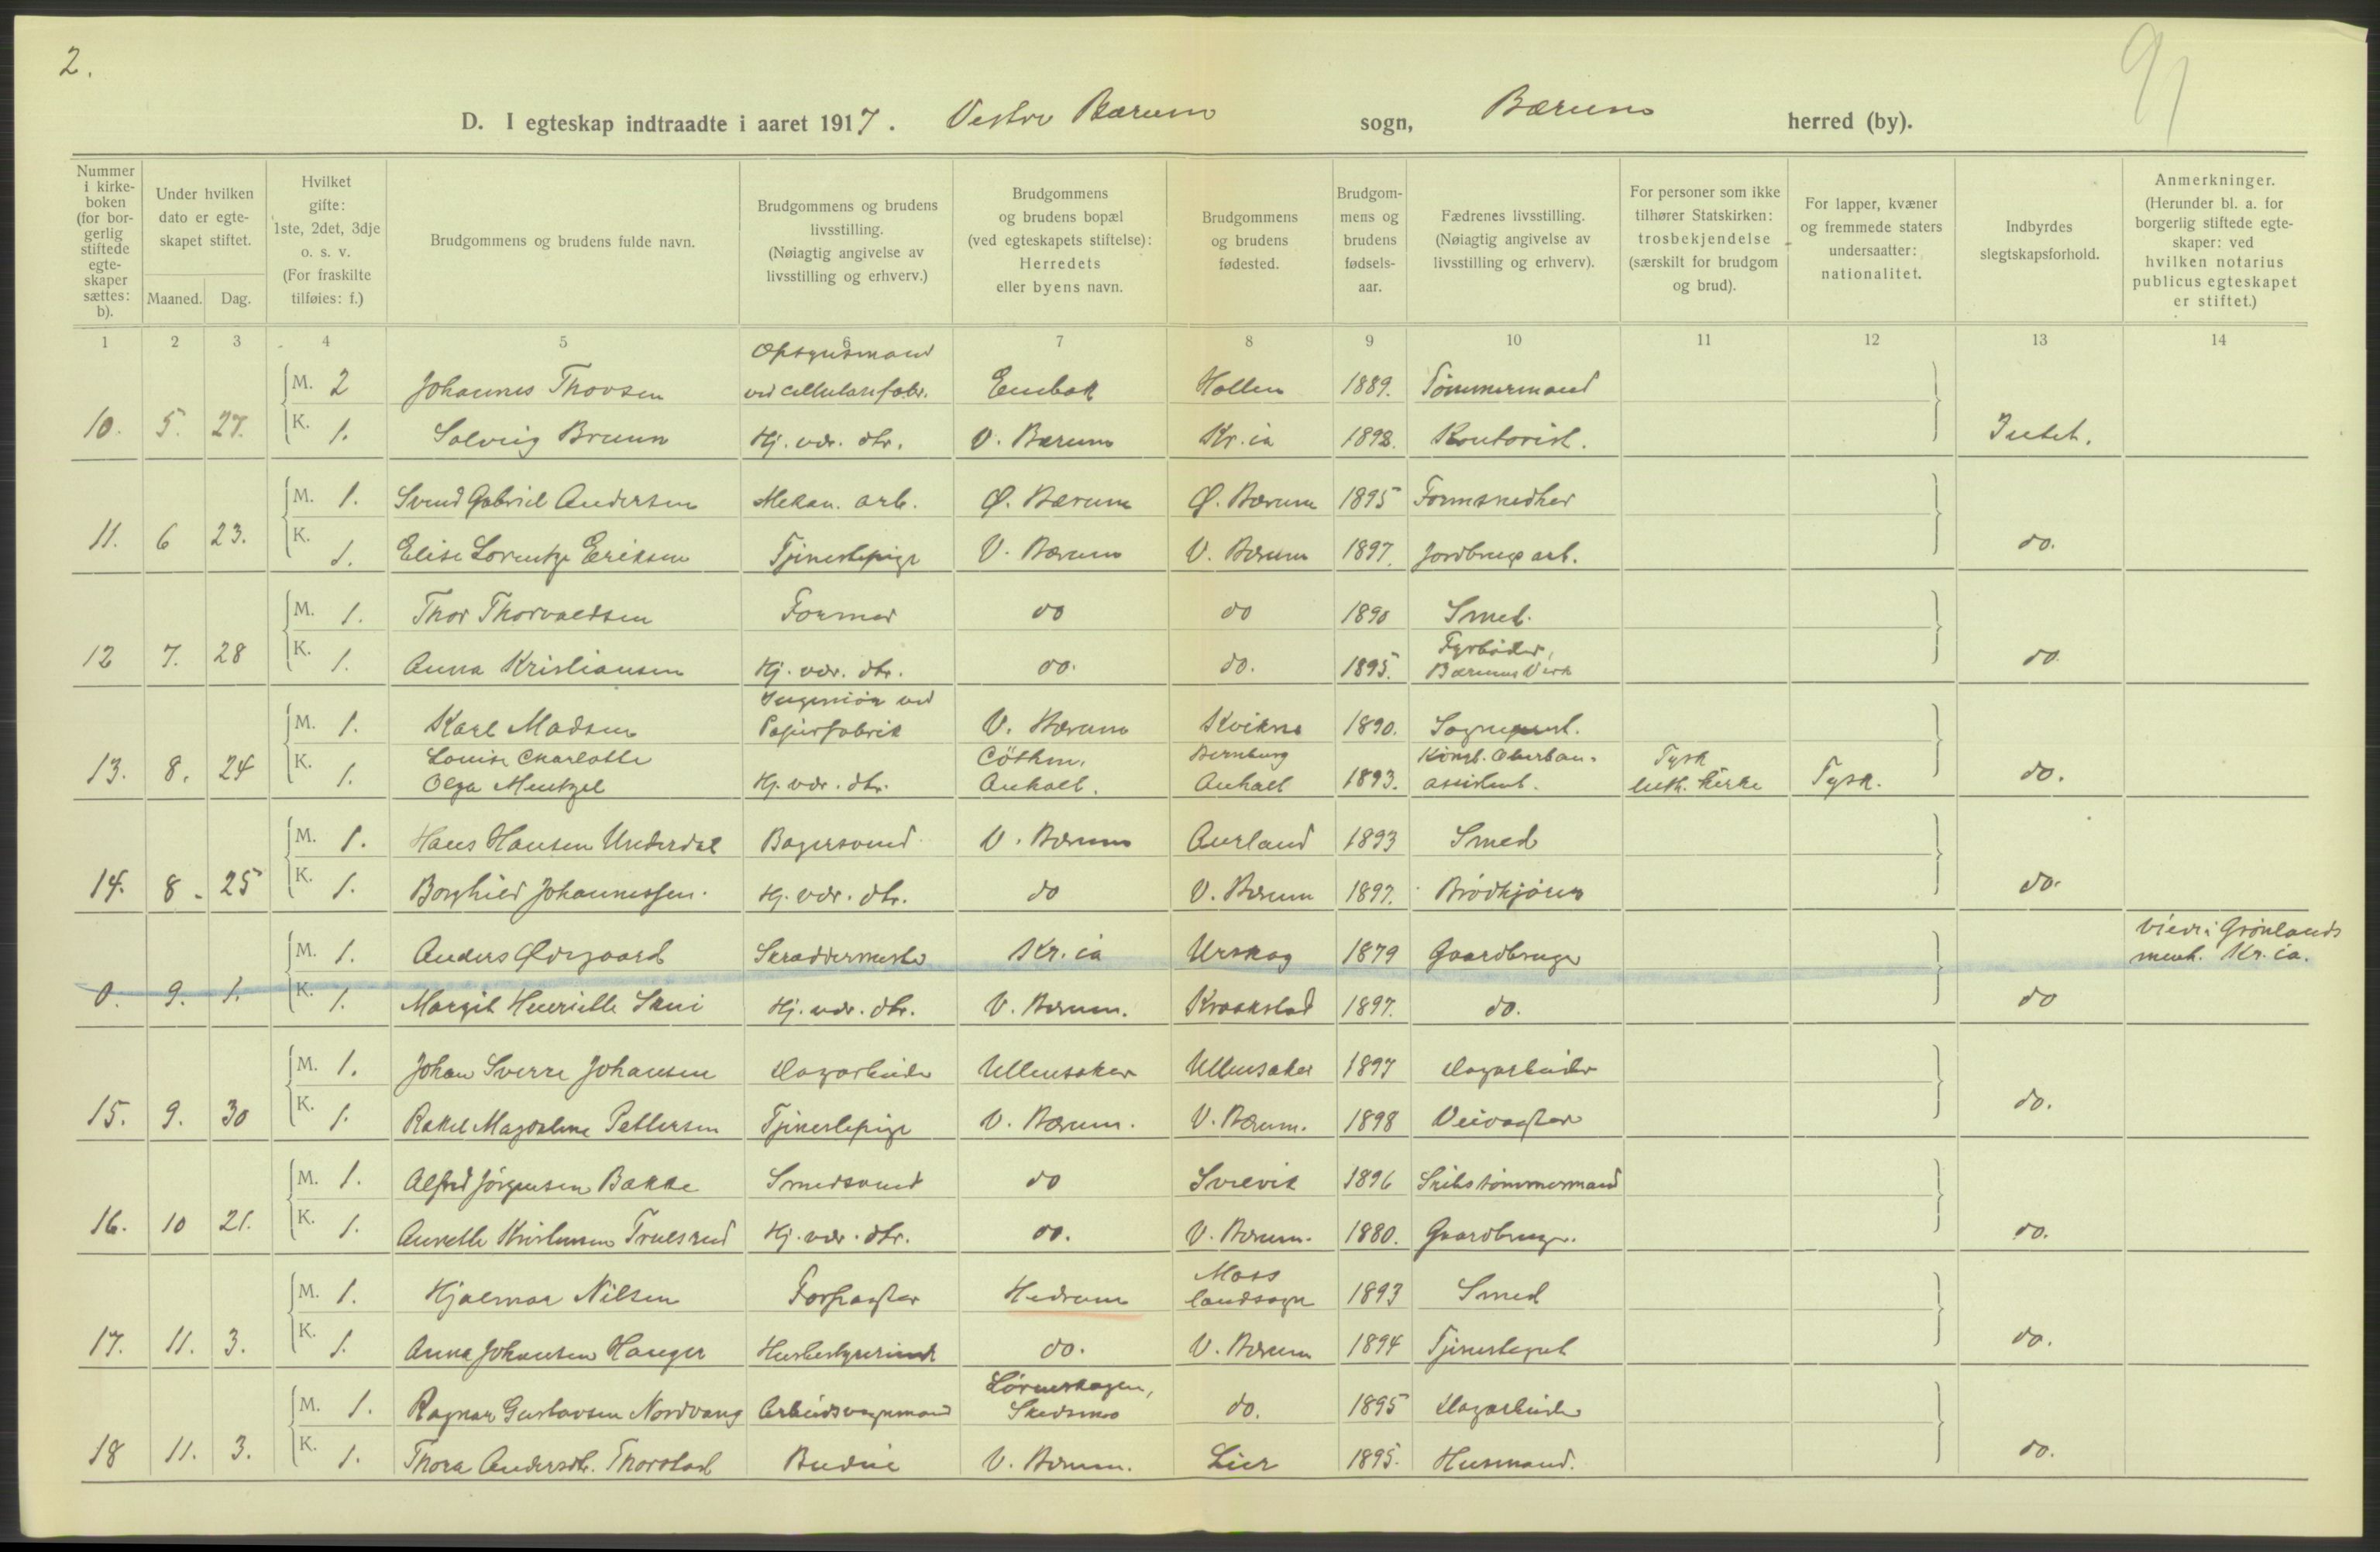 2.
91
D. I egteskap indtraadte i aaret 1917. Vestre Bærum sogn, Bærum herred (by).
Nummer i kirke-boken (for bor-gerlig stiftede egte-skaper sættes: b).
Under hvilken dato er egte-skapet stiftet.
Maaned. Dag.
Hvilket gifte: 1ste, 2det, 3dje o. s. v. (For fraskilte tilføies: f.)
Brudgommens og brudens fulde navn.
Brudgommens og brudens livsstilling. (Nøiagtig angivelse av livsstilling og erhverv.)
Brudgommens og brudens bopæl (ved egteskapets stiftelse): Herredets eller byens navn.
Brudgommens og brudens fødested.
Brudgom-mens og brudens fødsels-aar.
Fædrenes livsstilling. (Nøiagtig angivelse av livsstilling og erhverv).
For personer som ikke tilhører Statskirken: trosbekjendelse (særskilt for brudgom og brud).
For lapper, kvæner og fremmede staters undersaatter: nationalitet.
Indbyrdes slegtskapsforhold.
Anmerkninger. (Herunder bl. a. for borgerlig stiftede egte-skaper: ved hvilken notarius publicus egteskapet er stiftet.)
1 2 3 4 5 6 7 8 9 10 11 12 13 14
Opsynsmand
M. 2 Johannes Thovsen ved cellulosefabr. Eneback Hollen 1889. Tømmermand
10. 5. 27. K. 1. Solveig Bruun Hj. vær. dtr. V. Bærum Kr.ia 1898. Kontorist. Intet.
M. 1. Svend Gabriel Andersen Mekan. arb. Ø. Bærum Ø. Bærum 1895 Formsnedker
11. 6 23. K. 1. Elise Lorentze Eriksen Tjenestepige V. Bærum V. Bærum 1897. Jordbrugsarb. do.
M. 1. Thor Thorvaldsen Former do do 1890 Smed.
Fyrbøder,
12 7. 28 K. 1. Anna Kristiansen Hj. vær. dtr. do. do. 1895. Bærums Verk do
Ingeniør ved
M. 1. Karl Madsen Papirfabrik V. Bærum Kvikne 1890. Sogneprest.
Louise Charlotte Cöthen, Bernburg Köngl. Oberbau- Tysk
13. 8. 24 K. 1. Olga Mentzel Hj. vær. dtr. Anhalt. Anhalt 1893. assistent. luth. kirke Tysk. do.
M. 1. Hans Hansen Underdal Bagersvend V. Bærum Aurland 1893 Smed
14. 8. 25 K. 1. Borghild Johannessen. Hj. vær. dtr. do V. Bærum 1897. Brødkjører do.
Viede i Grønlands
M. 1. Anders Ødegaard Skræddermester Kr.ia Urskog 1879 Gaardbruger menh. Kr.ia.
0. 9. 1. K. 1. Margit Henriette Skui Hj. vær. dtr. V. Bærum. Kraakstad 1897. do. do
M. 1. Johan Sverre Johansen Dagarbeider Ullensaker Ullensaker 1897 Dagarbeider
15. 9. 30 K. 1. Rakel Magdalene Pettersen Tjenestepige V. Bærum. V. Bærum. 1898 Veivogter do.
M. 1. Alfred Jørgensen Bakke Smedsvend do Svelvik 1896 Skibstømmermand
16. 10 21. K. 1. Annette Kristensen Truelsrud Hj. vær. dtr. do. V. Bærum. 1880. Gaardbruger. do.
Moss
M. 1. Hjalmar Nilsen Forpagter Hedrum landsogn 1893 Smed
17. 11. 3. K. 1. Anna Johansen Hauger Husbestyrerinde do. V. Bærum 1894 Tjenestegut do.
Lørenskogen,
M. 1. Ragnar Gustavsen Nordvang Arbeidsvognmand Skedsmo do. 1895 Dagarbeider
18 11. 3. K. 1. Thora Andersdtr. Thorstad Budeie V. Bærum. Lier 1895. Husmand. do.